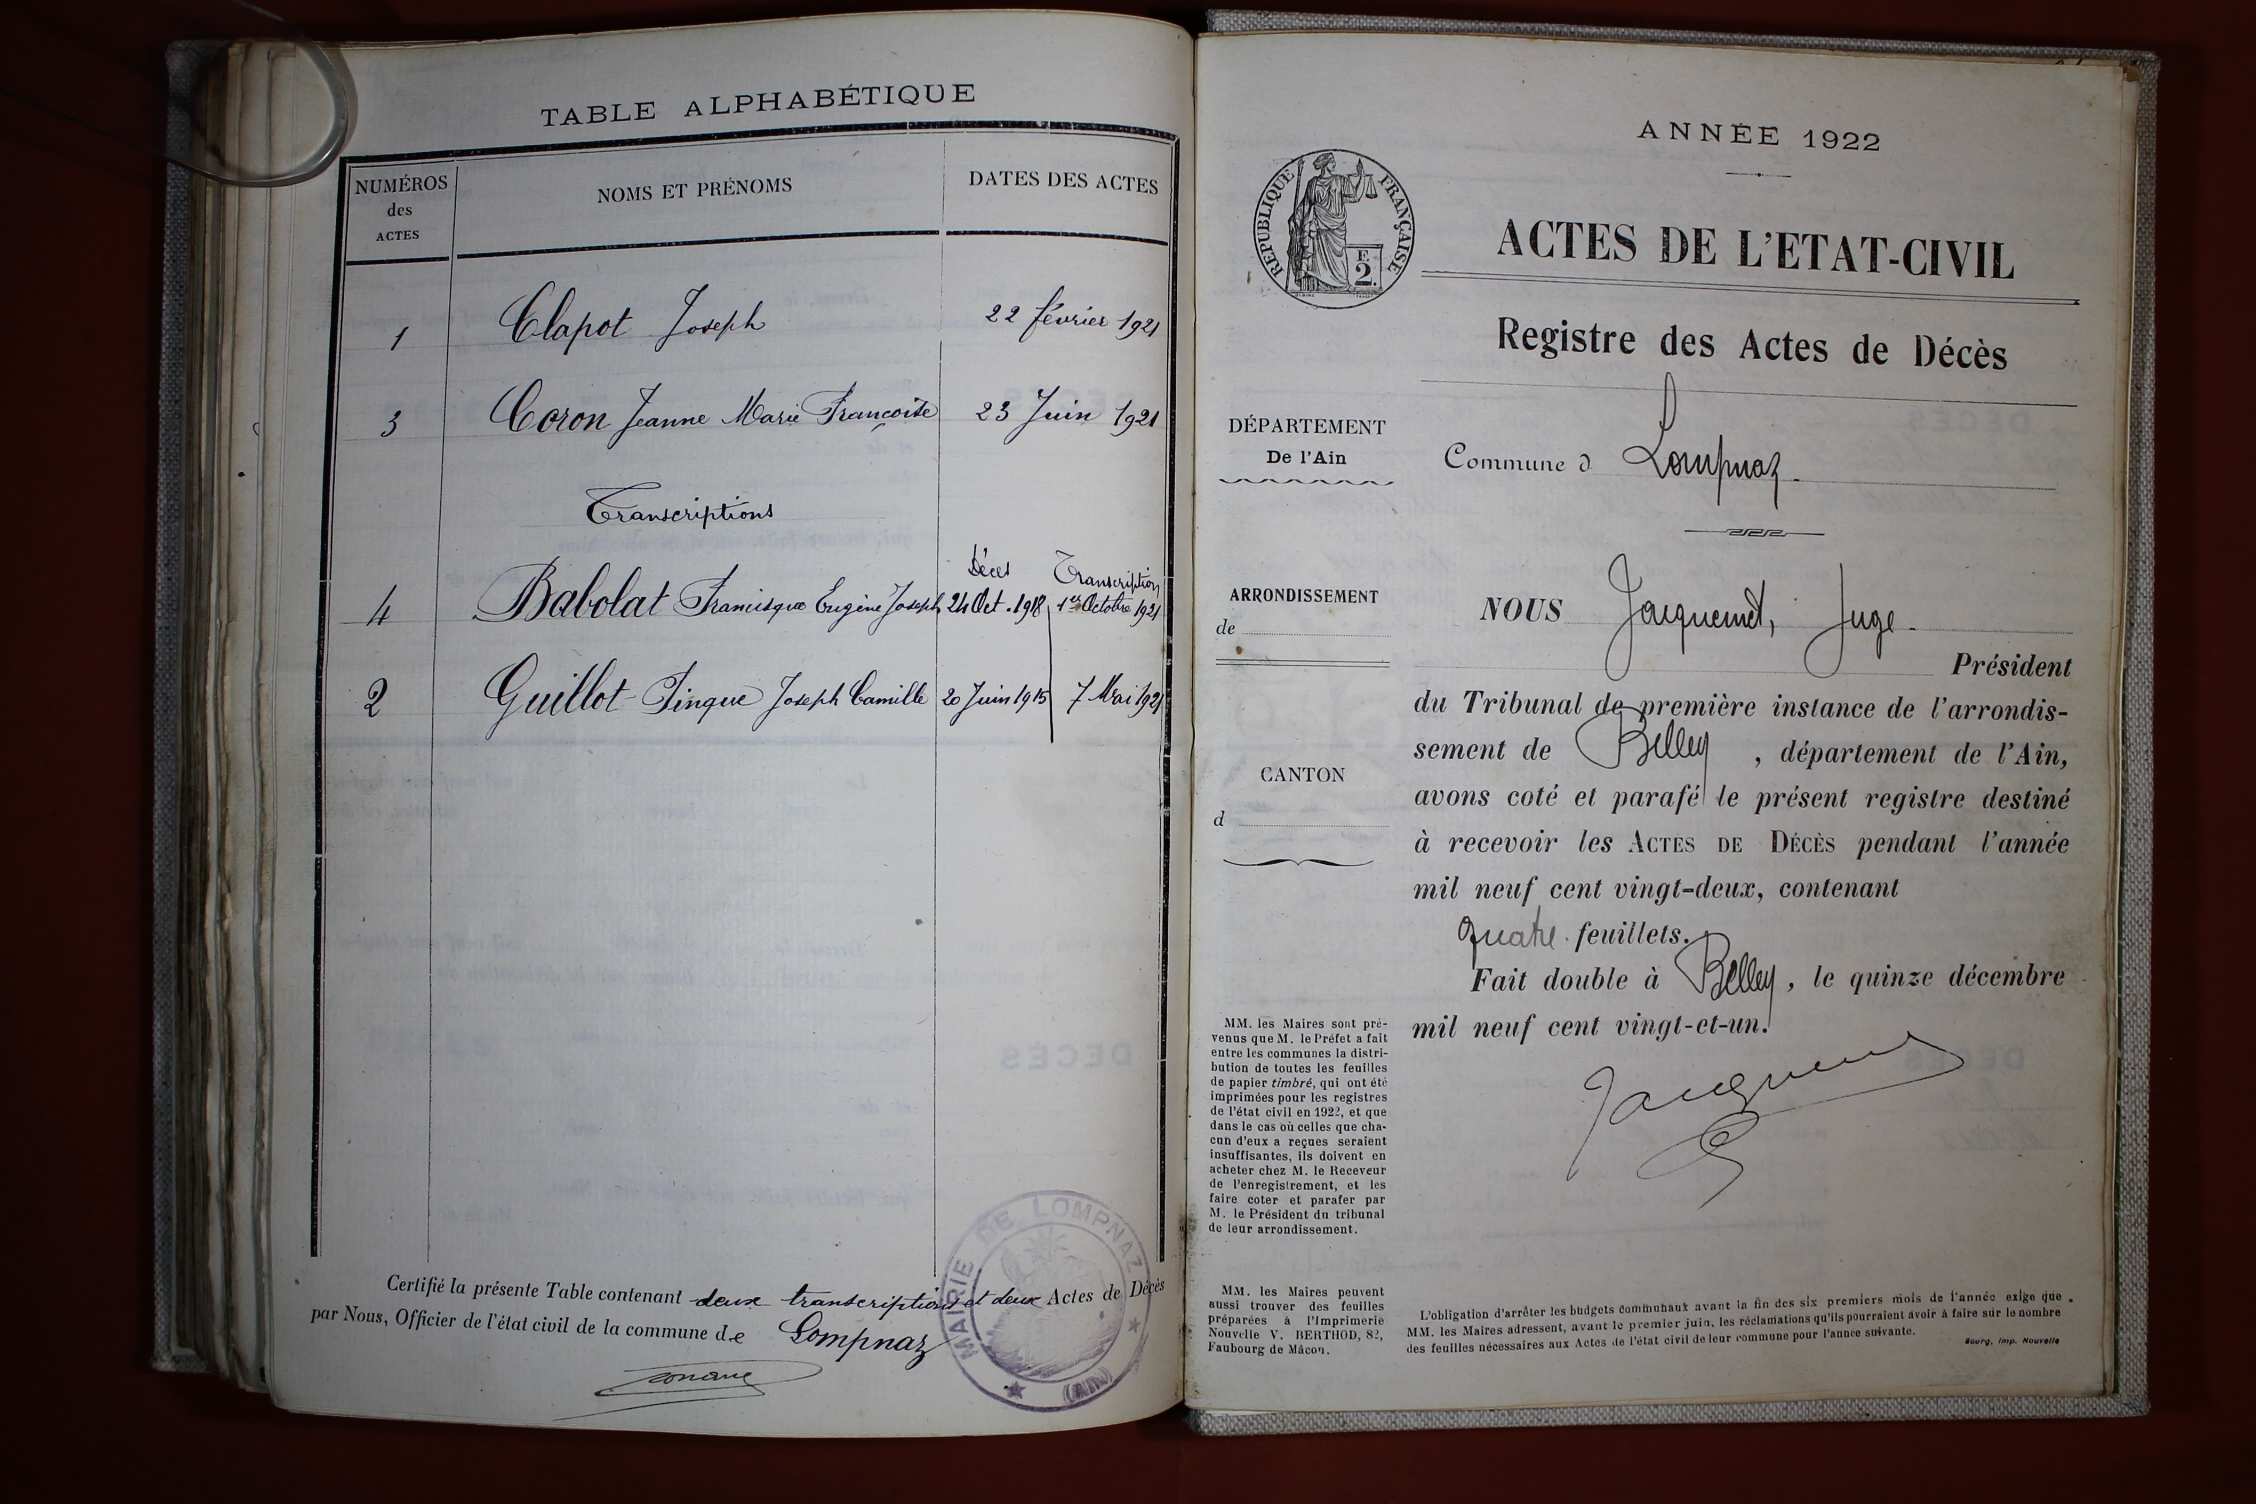 TABLE ALPHABÉTIQUE
NUMÉROS
des
ACTES
NOMS ET PRÉNOMS
DATES DES ACTES
1 Clapot Joseph 22 février 1921
3 Coron Jeanne Marie Françoise 23 Juin 1921
Transcriptions
Décès Transcription
4 Babolat Francisque Eugène Joseph 24 Oct. 1918 1er Octobre 1921
2 Guillot-Pingue Joseph Camille 20 Juin 1915 7 Mai 1921
Certifié la présente Table contenant deux transcriptions et deux Actes de Décès
par Nous, Officier de l'état civil de la commune de Lompnaz
MAIRIE DE LOMPNAZ
(AIN)
ANNÉE 1922
RÉPUBLIQUE FRANÇAISE
F.
2.
ACTES DE L'ETAT-CIVIL
Registre des Actes de Décès
DÉPARTEMENT
De l'Ain
Commune d Lompnaz
ARRONDISSEMENT
de
CANTON
d
NOUS Jacquemet, Juge
Président
du Tribunal de première instance de l'arrondis-
sement de Belley, département de l'Ain,
avons coté et parafé le présent registre destiné
à recevoir les ACTES DE DÉCÈS pendant l'année
mil neuf cent vingt-deux, contenant
quatre feuillets.
Fait double à Belley, le quinze décembre
mil neuf cent vingt-et-un.
MM. les Maires sont pré-
venus que M. le Préfet a fait
entre les communes la distri-
bution de toutes les feuilles
de papier timbré, qui ont été
imprimées pour les registres
de l'état civil en 1922, et que
dans le cas où celles que cha-
cun d'eux a reçues seraient
insuffisantes, ils doivent en
acheter chez M. le Receveur
de l'enregistrement, et les
faire coter et parafer par
M. le Président du tribunal
de leur arrondissement.
MM. les Maires peuvent
aussi trouver des feuilles
préparées à l'Imprimerie
Nouvelle V. BERTHOD, 82,
Faubourg de Mâcon.
L'obligation d'arrêter les budgets communaux avant la fin des six premiers mois de l'année exige que
MM. les Maires adressent, avant le premier juin, les réclamations qu'ils pourraient avoir à faire sur le nombre
des feuilles nécessaires aux Actes de l'état civil de leur commune pour l'année suivante.
Bourg, Imp. Nouvelle